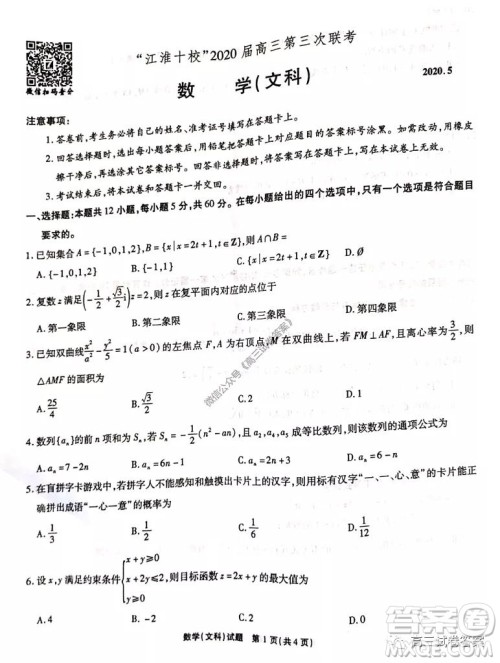 微信扫码查分
“江淮十校”2020届高三第三次联考
数 学(文科)
2020.5
注意事项：
1.答卷前，考生务必将自己的姓名、准考证号填写在答题卡上。
2.回答选择题时，选出每小题答案后，用铅笔把答题卡上对应题目的答案标号涂黑。如需改动，用橡皮
擦干净后，再选涂其它答案标号。回答非选择题时，将答案写在答题卡上，写在本试卷上无效。
3.考试结束后，将本试卷和答题卡一并交回。
一、选择题：本题共12小题，每小题5分，共60分。在每小题给出的四个选项中，只有一个选项是符合题目
要求的。
1.已知集合A={-1,0,1,2},B={x|x=2t+1,t∈Z},则A∩B=
A.{-1,0,1} B.{-1,1} C.{-1,0,1,2} D.∅
2.复数z满足(-1/2+√3/2 i)z=2,则z在复平面内对应的点位于
A.第一象限 B.第二象限 C.第三象限 D.第四象限
3.已知双曲线x²/a²-y²/5=1(a>0)的左焦点F,右顶点为A,点M在双曲线上,若FM⊥AF,且离心率为3/2,则
△AMF的面积为
A.25/4 B.√3/2 C.2 D.1/2
4.数列{aₙ}的前n项和为Sₙ,若Sₙ=-1/2(n²-an),且数列的第三项为1,则数列的通项公式为
A.aₙ=7-2n B.aₙ=-2 C.aₙ=4-n D.aₙ=6-n
5.在盲拼字卡游戏中,若拼字人不能感知和触摸出卡片上的汉字,则用写有“一、一、心、意”的卡片能正
确拼出成语“一心一意”的概率为
A.1/2 B.1/12 C.1/6 D.0
6.设x,y满足约束条件{x+y≥0 x-y≥0 2x+y≤2,则目标函数z=2x+y的最大值为
A.4 B.-2 C.2 D.0
数学(文科)试题 第1页(共4页)
微信公众号《高三试卷答案》
高三试卷答案